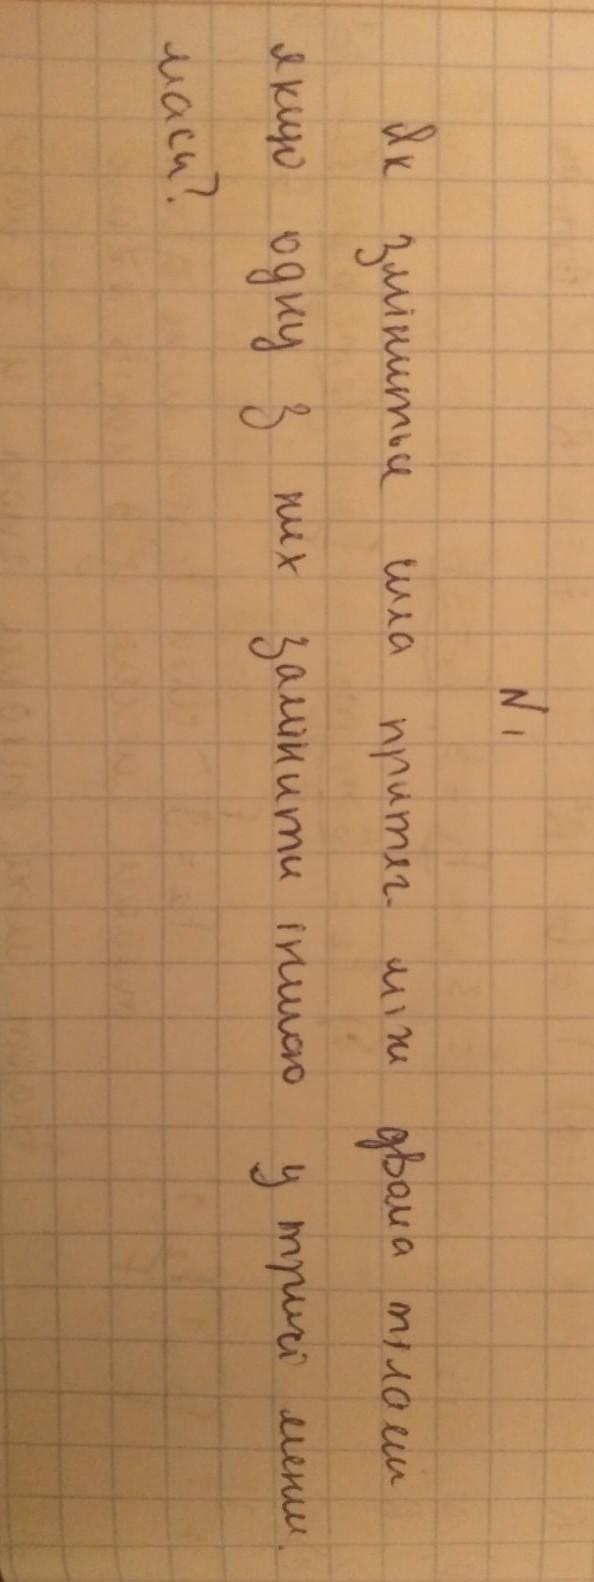 N1
Як зміниться сила притяг. між двома тілами
якщо одну з них замінити іншою у тричі менш.
маси?